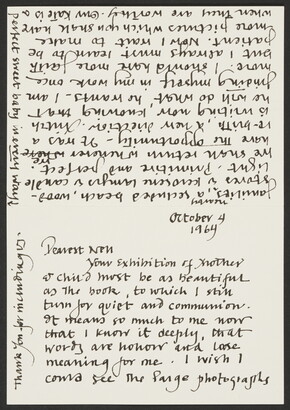 October 4
1964
Dearest Nell
Your exhibition of Mother
& Child must be as beautiful
as the book, to which I still
turn for quiet and communion.
It means so much to me now
that I know it deeply, that
words are hollow and lose
meaning for me. I wish I
could see the large photographs
families, a secluded beach, wood-
nearby
stoves & kerosene lamps & candle
light. Primitive and perfect.
We shall return whenever we
have the opportunity. It was a
re-birth, a new direction.
is writing now, knowing that
he will do what he wants. I am
finding myself in my work once
more. I should have more faith
but I always must learn to be
patient. Now I want to make
more pictures which you shall have
when they are worthy. Our Kale is a
perfect sweet baby in every way.
Thank you for including